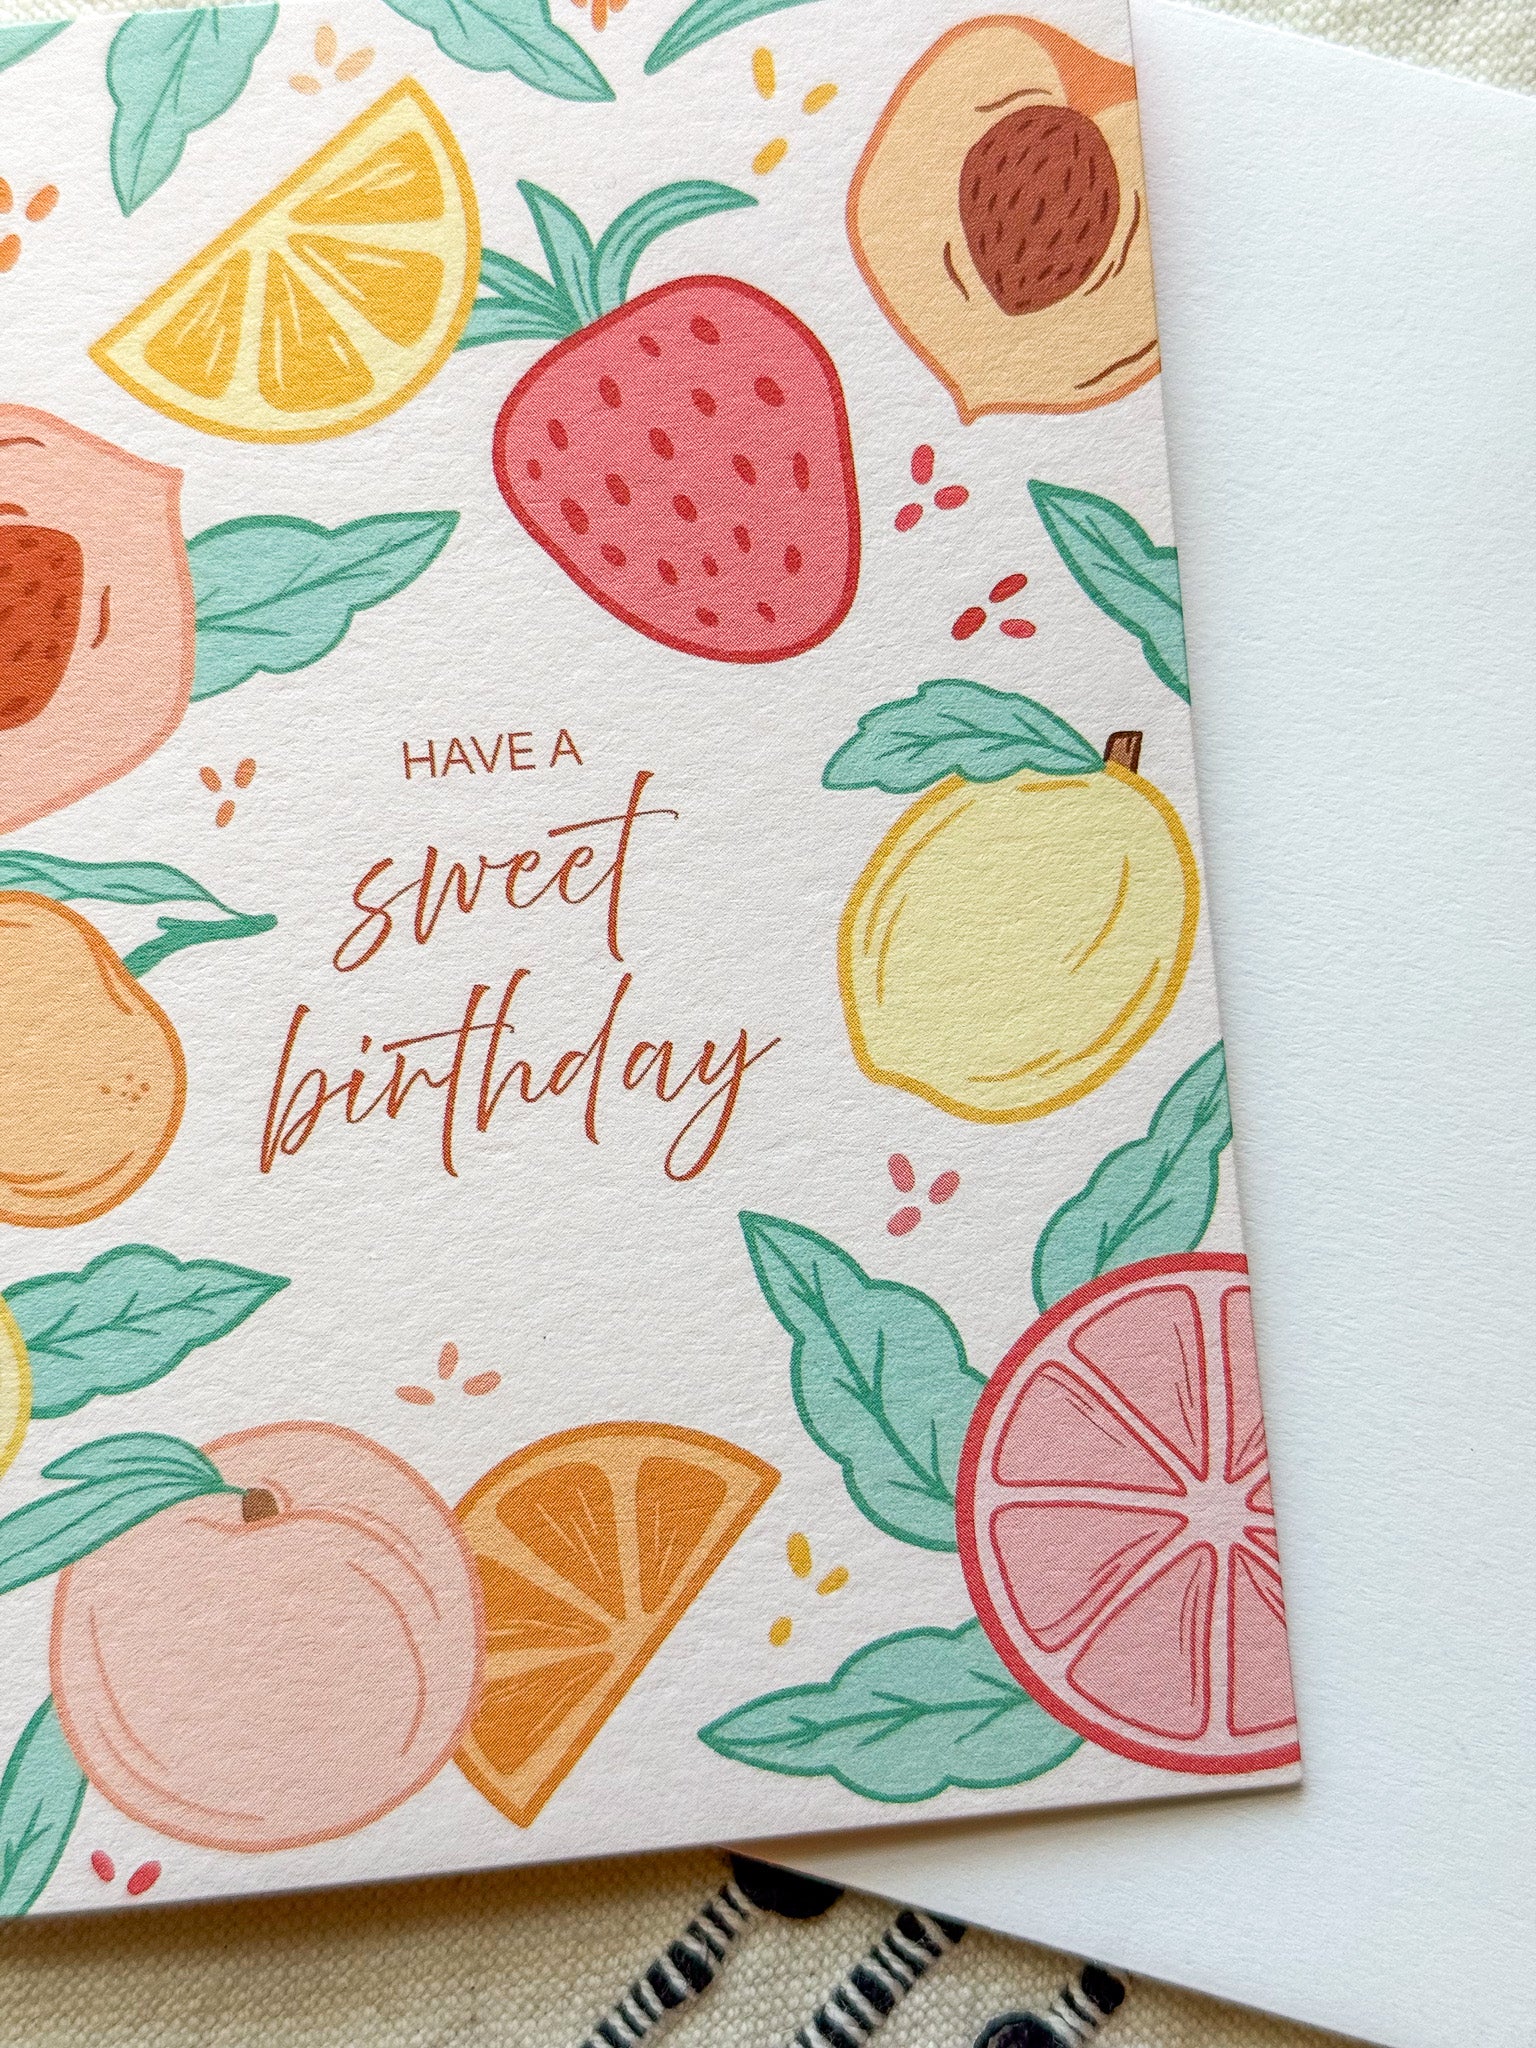 HAVE A
sweet
birthday